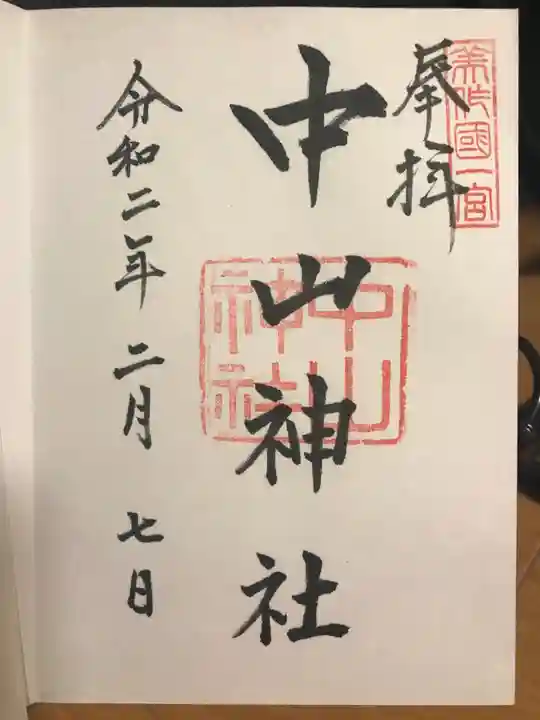 美作國一宮
奉拝
中山神社
中山神社
令和二年二月七日